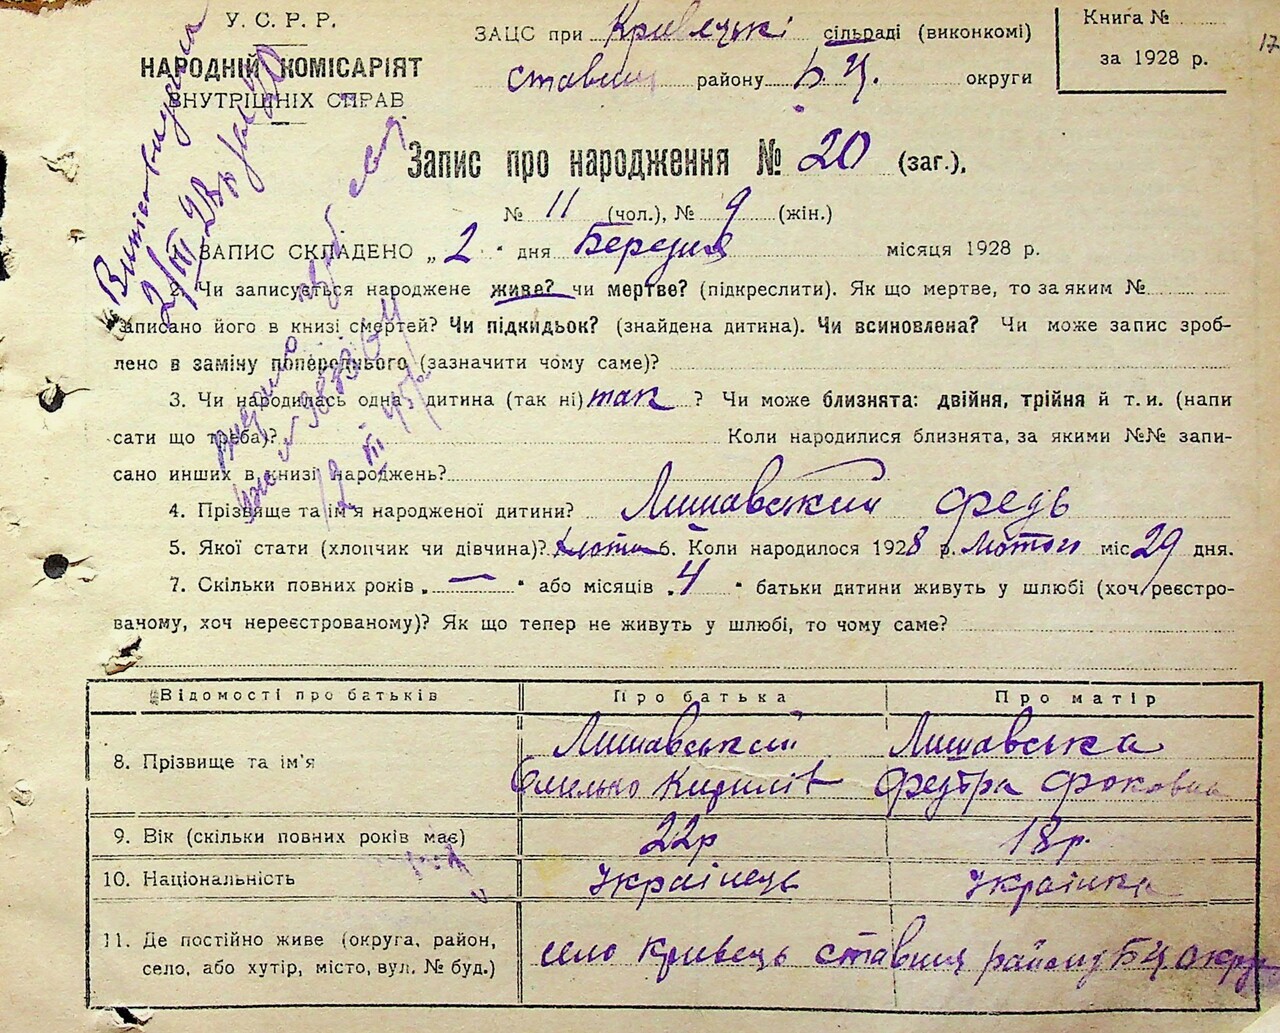 У. С. Р. Р.
НАРОДНІЙ КОМІСАРІЯТ
ВНУТРІШНІХ СПРАВ
ЗАЦС при Кривецькі сільраді (виконкомі)
ставищ району Б. Ц. округи
Книга №
за 1928 р.
17
Запис про народження № 20 (заг.),
№ 11 (чол.), № 9 (жін.)
ЗАПИС СКЛАДЕНО „ 2 " дня Березня місяця 1928 р.
2. Чи записується народжене живе? чи мертве? (підкреслити). Як що мертве, то за яким №
записано його в книзі смертей? Чи підкидьок? (знайдена дитина). Чи всиновлена? Чи може запис зроб-
лено в заміну попереднього (зазначити чому саме)?
3. Чи народилась одна дитина (так ні) так ? Чи може близнята: двійня, трійня й т. и. (напи
сати що треба)? Коли народилися близнята, за якими №№ запи-
сано инших в книзі народжень?
4. Прізвище та ім'я народженої дитини? Лишавский Федь
5. Якої стати (хлопчик чи дівчина)? 6. Коли народилося 1928 р. Лютого міс 29 дня.
7. Скільки повних років „ — " або місяців „ 4 " батьки дитини живуть у шлюбі (хоч реєстро-
ваному, хоч нереєстрованому)? Як що тепер не живуть у шлюбі, то чому саме?
Відомості про батьків Про батька Про матір
8. Прізвище та ім'я
Лишавський Лишавська
Омелько Кирилів Федтра Фоковна
9. Вік (скільки повних років має) 22р 18р.
10. Національність Українець Українка
11. Де постійно живе (округа, район,
село, або хутір, місто, вул. № буд.)
село Кривець ставищ району БЦ округ